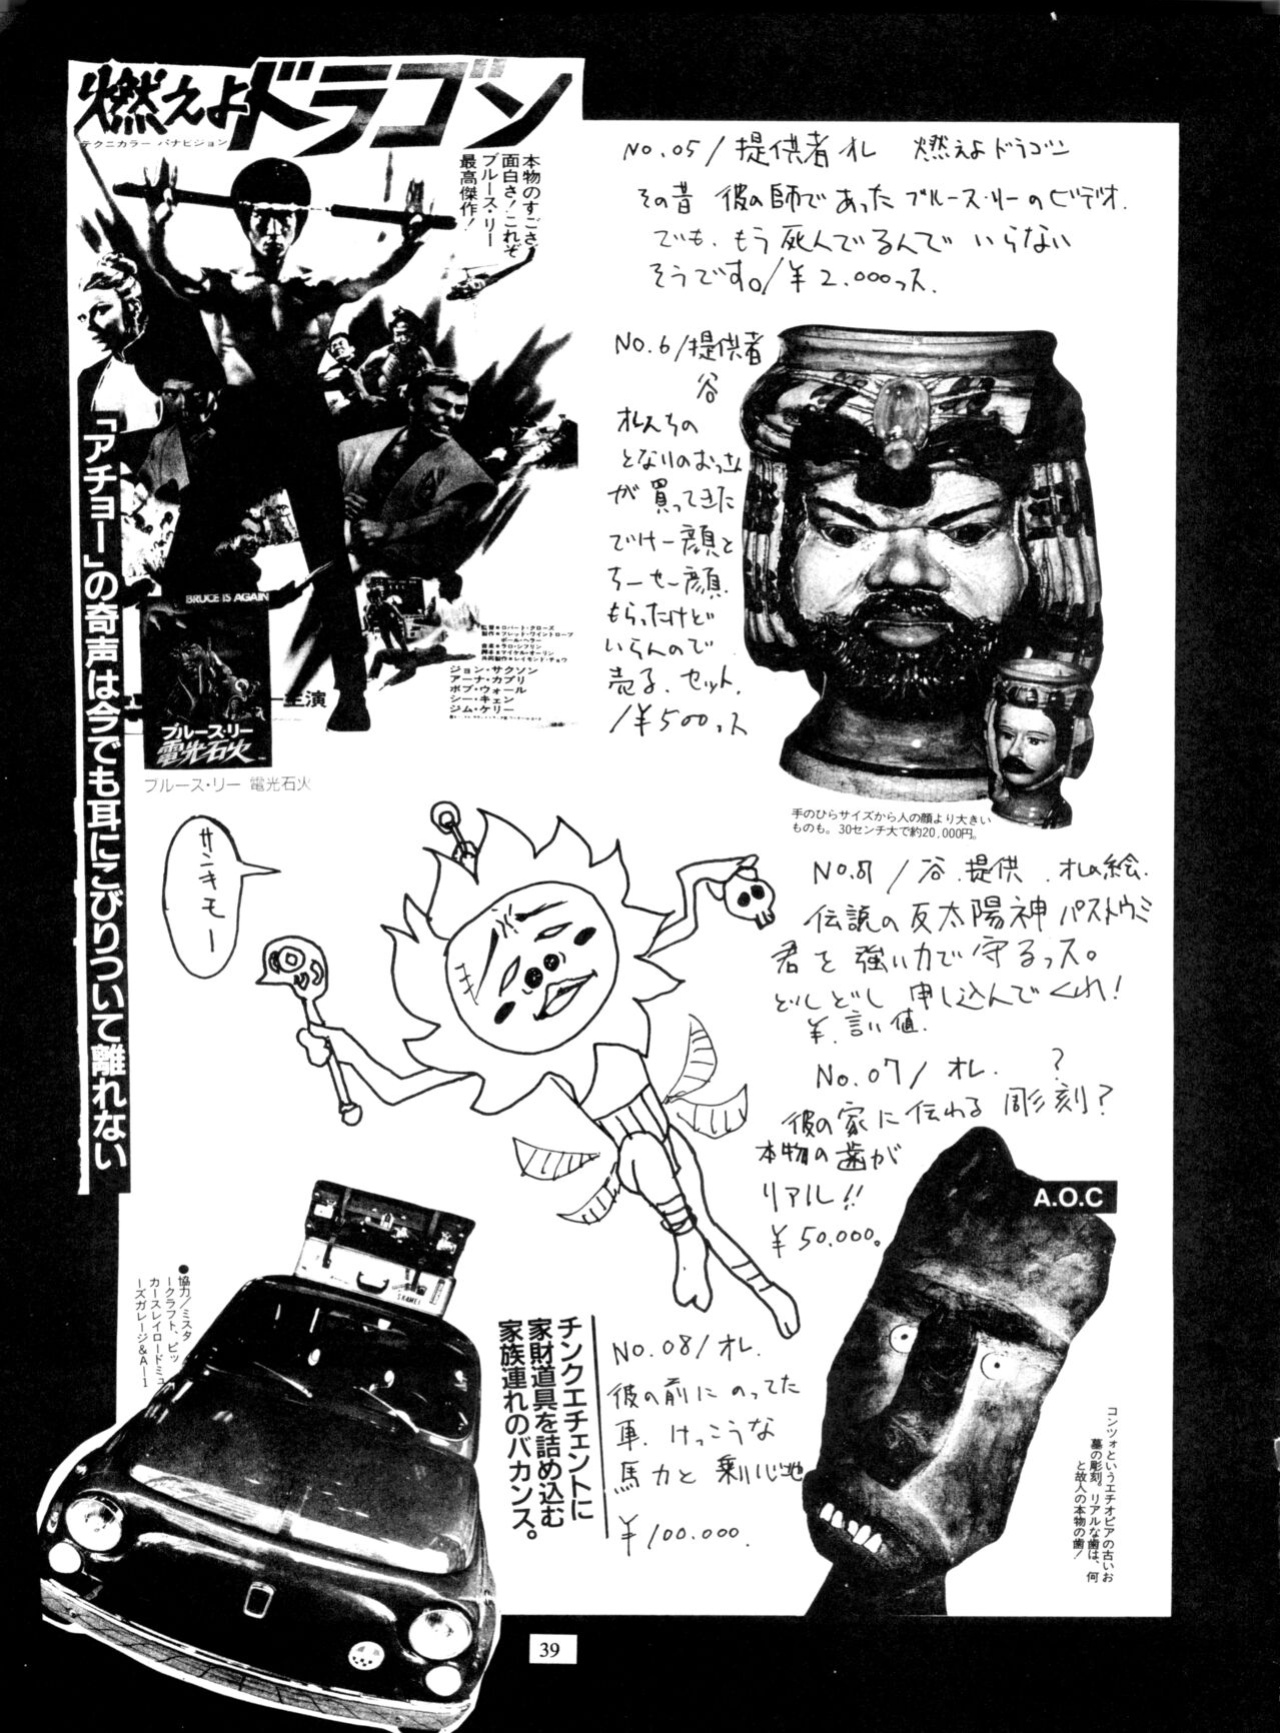 燃えよドラゴン
テクニカラー パナビジョン
本物のすごさ、
面白さ!これぞ
ブルース・リー
最高傑作!
「アチョー」の奇声は今でも耳にこびりついて離れない
BRUCE IS AGAIN
ブルース・リー
電光石火
主演
監督●ロバート・クローズ
製作●フレッド・ワイントローブ
ポール・ヘラー
音楽●ラロ・シフリン
脚本●マイケル・オーリン
共同製作●レイモンド・チョウ
ジョン・サクソン
アーナ・カプリ
ボブ・ウォール
シー・キェン
ジム・ケリー
ブルース・リー 電光石火
No.05/提供者オレ 燃えよドラゴン
その昔 彼の師であったブルース・リーのビデオ.
でも、もう死んでるんで いらない
そうです。/¥2.000っス.
No.6/提供者
谷
オレんちの
となりのおっさん
が買ってきた
でけー顔と
ちーせー顔.
もらったけど
いらんので
売る.セット.
/¥500っス
手のひらサイズから人の顔より大きい
ものも。30センチ大で約20,000円。
サンキモー
No.07/谷.提供.オレの絵.
伝説の反太陽神パストウミ
君を強い力で守るっス。
どしどし申し込んでくれ!
¥.言い値.
No.07/オレ. ?
彼の家に伝わる彫刻?
本物の歯が
リアル!!
¥50.000。
A.O.C
コンツォというエチオピアの古いお
墓の彫刻。リアルな歯は、何
と故人の本物の歯!
●協力/ミスタ
ークラフト、ビッ
カースレイロードミュ
ーズガレージ&A-1
チンクエチェントに
家財道具を詰め込む
家族連れのバカンス。
No.08/オレ.
彼の前にのってた
車.けっこうな
馬力と乗り心地
¥100.000.
39